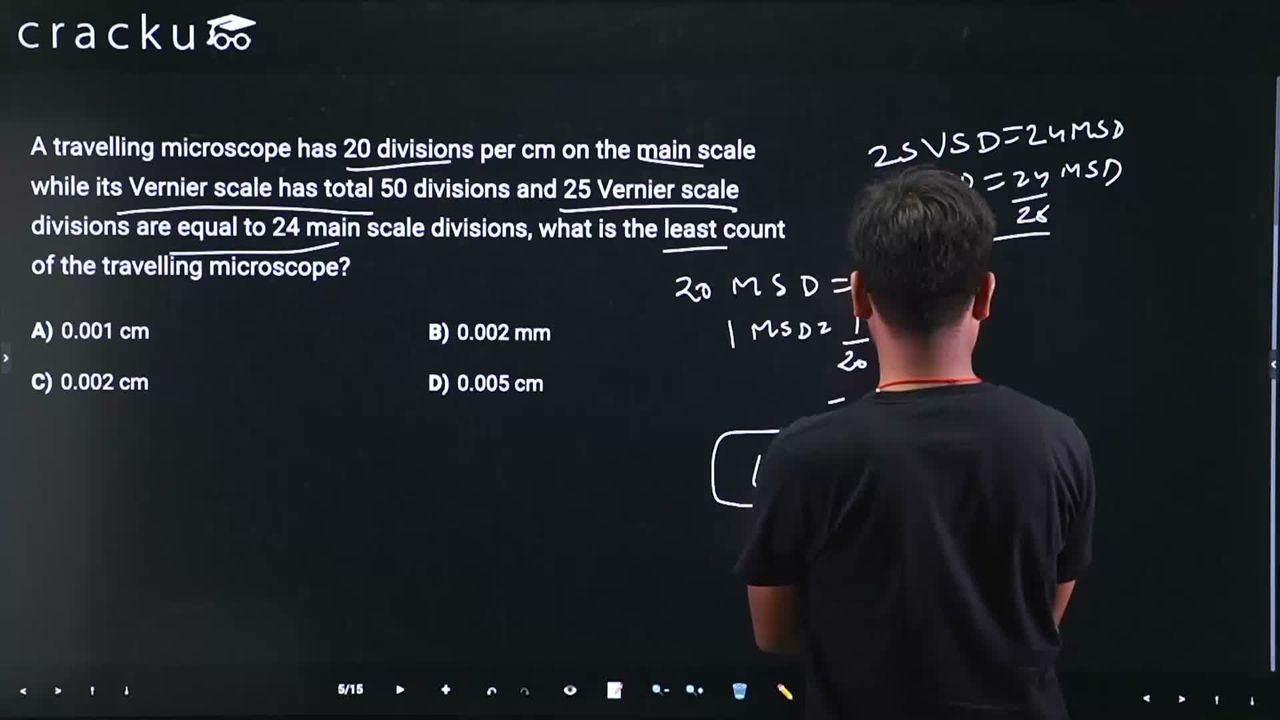 cracku
A travelling microscope has 20 divisions per cm on the main scale
while its Vernier scale has total 50 divisions and 25 Vernier scale
divisions are equal to 24 main scale divisions, what is the least count
of the travelling microscope?
A) 0.001 cm
B) 0.002 mm
C) 0.002 cm
D) 0.005 cm
25 VSD = 24 MSD
D = 24/25 MSD
20 MSD =
1 MSD = 1/20
5/15